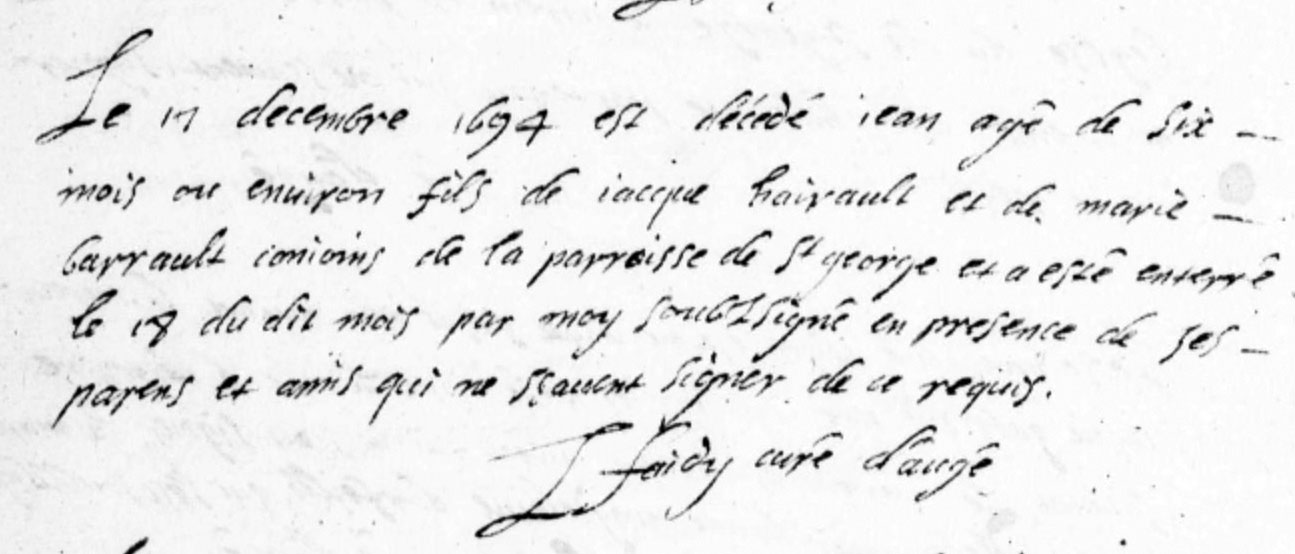 Le 17 decembre 1694 est décédé iean agé de six
mois ou enuiron fils de iacque hairault et de marie
barrault conioins de la parroisse de st george et a esté enterré
le 18 du dit mois par moy soubssigné en presence de ses
parens et amis qui ne sçauent signer de ce requis.
curé d'augé